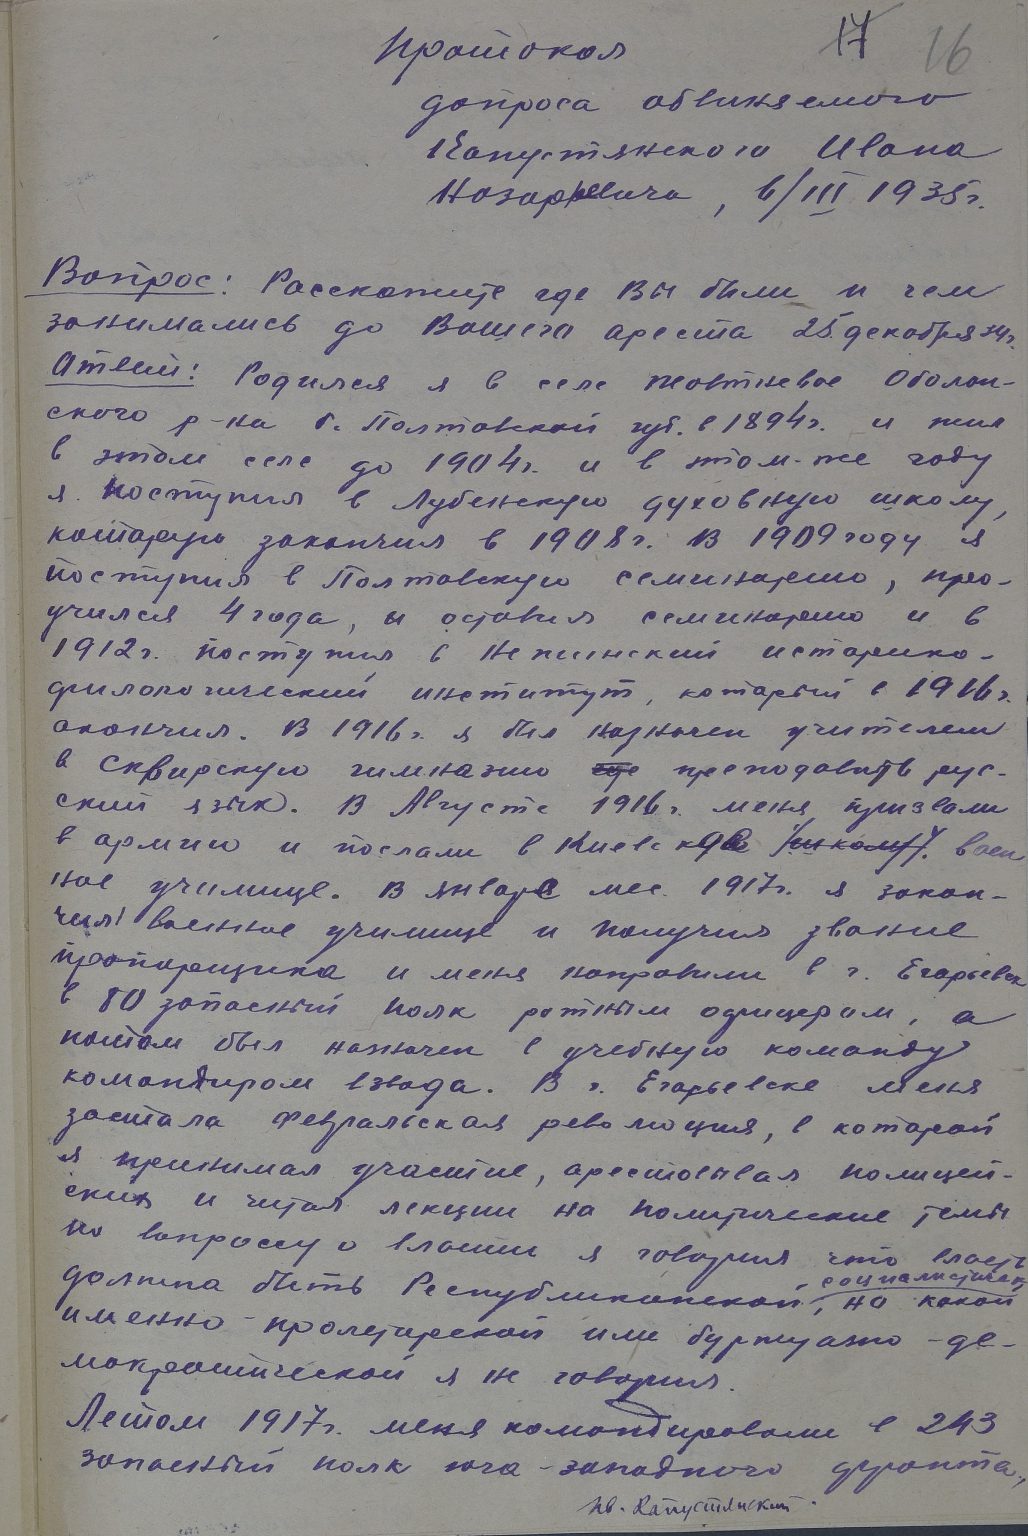 17 16
Протокол
допроса обвиняемого
Капустянского Ивана
Назарьевича, 6/III 1935г.
Вопрос: Расскажите где Вы были и чем
занимались до Вашего ареста 25 декабря 34г.
Ответ: Родился я в селе Жовтневое Оболон-
ского р-на б. Полтавской губ. в 1894г. и жил
в этом селе до 1904г. и в том-же году
я поступил в Лубенскую духовную школу,
которую закончил в 1908г. В 1909 году я
поступил в Полтавскую семинарию, про-
учился 4 года, и оставил семинарию и в
1912г. поступил в Нежинский историко-
филологический институт, который в 1916г.
окончил. В 1916г. я был назначен учителем
в Сквирскую гимназию где преподавать рус-
ский язык. В Августе 1916г. меня призвали
в армию и послали в Киевское /школу/. воен
ное училище. В январе мес. 1917г. я закон-
чил военное училище и получил звание
прапорщика и меня направили в г. Егорьевск
в 80 запасный полк ротным офицером, а
потом был назначен в учебную команду
командиром взвода. В г. Егорьевске меня
застала февральская революция, в которой
я принимал участие, арестовывал полицей-
ских и читал лекции на политические темы
по вопросу о власти я говорил что власть
должна быть Республиканской, социалистическ, но какой
именно пролетарской или буржуазно-де-
мократической я не говорил.
Летом 1917г. меня командировали в 243
запасный полк юго-западного фронта,
Ив. Капустянский.